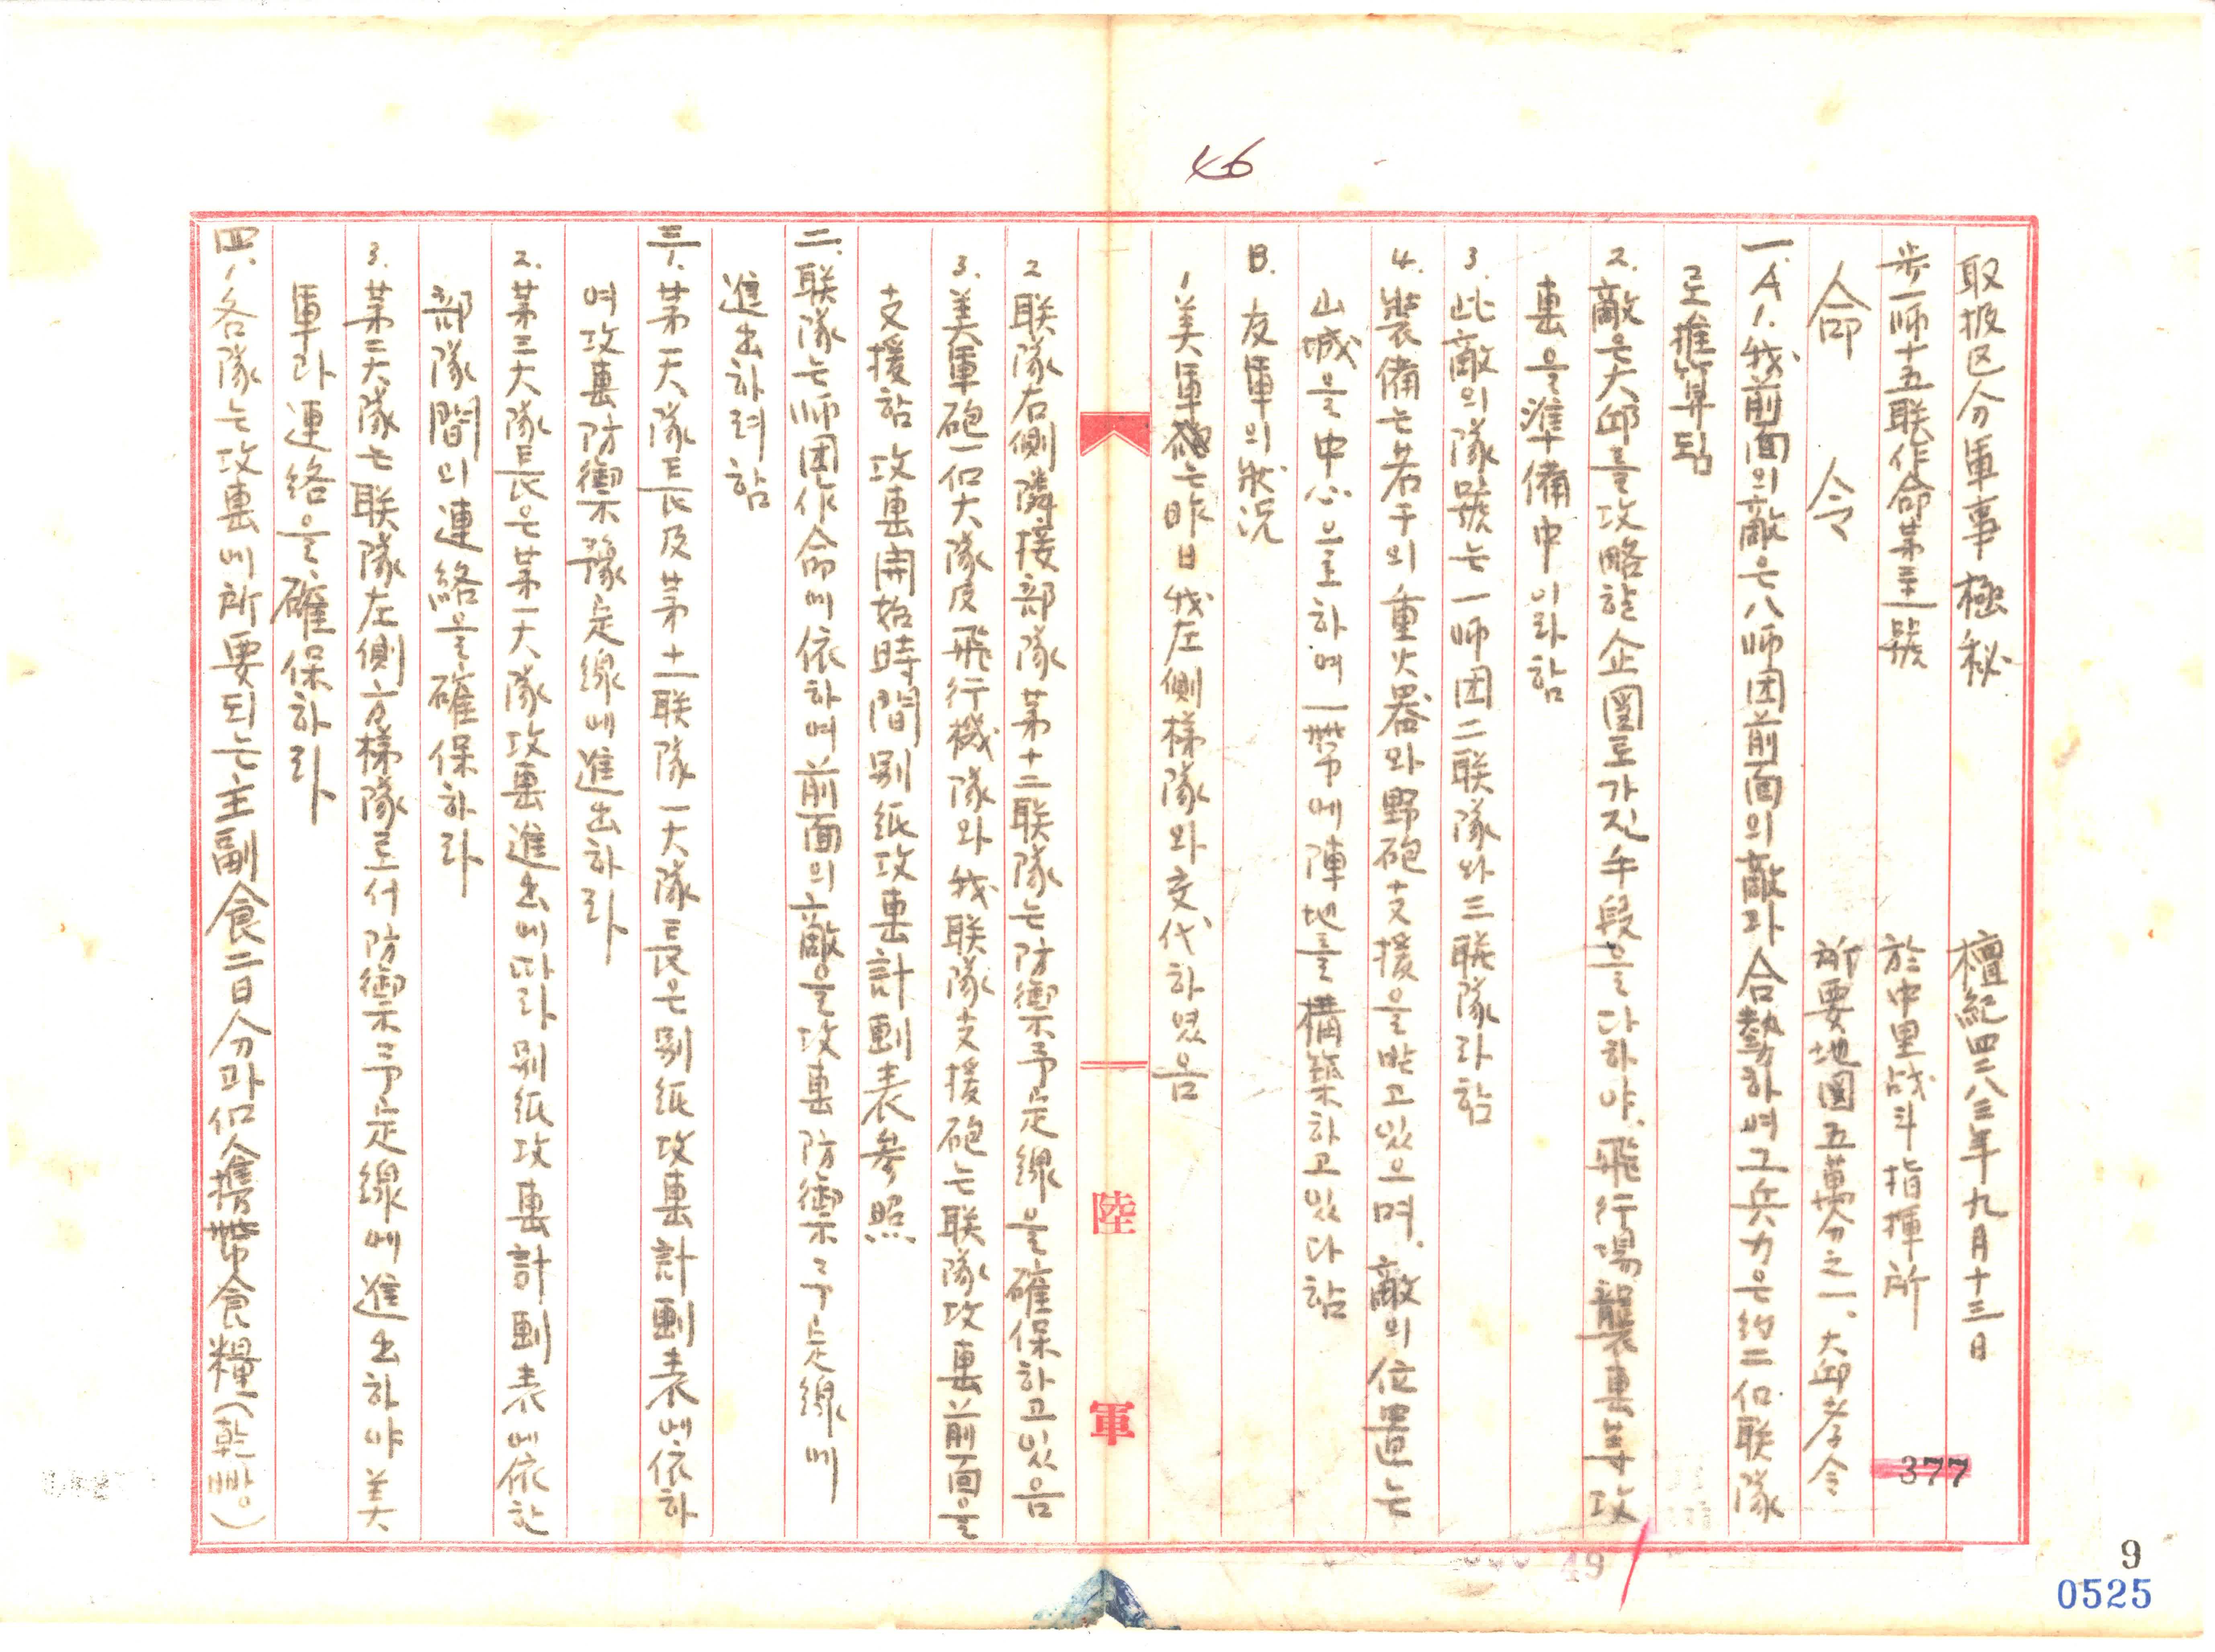 46
取扱区分軍事極秘 檀紀四二八三年九月十三日
步一師十五联作命第三一號 於中里战斗指揮所
命 令 所要地圖五萬分之一、大邱孝令
一.A 1.我前面의敵은八師团前面의敵과合勢하며그兵力은約二個联隊
로推算됨
2.敵은大邱를攻略할企圖로가진手段을다하야.飛行場襲擊等攻
擊을準備中이라함
3.此敵의隊號는一師团二联隊와三联隊라함
4.裝備는若干의重火器와野砲支援을받고있으며.敵의位置는
山城을中心으로하여一帶에陣地를構築하고있다함
B.友軍의狀況
1美軍은昨日我左側梯隊와交代하였음
2联隊右側隣接部隊第十二联隊는防禦予定線을確保하고있음
3.美軍砲一個大隊及飛行機隊와我联隊支援砲는联隊攻擊前面을
支援함攻擊開始時間別紙攻擊計劃表參照
二.联隊는师团作命에依하여前面의敵을攻擊防禦予定線에
進出하려함
三1.第一大隊長及第十一联隊一大隊長은別紙攻擊計劃表에依하
여攻擊防禦豫定線에進出하라
2.第三大隊長은第一大隊攻擊進出에따라別紙攻擊計劃表에依한
部隊間의連絡을確保하라
3.第二大隊는联隊左側方梯隊로서防禦予定線에進出하야美
軍과連絡을確保하라
四1.各隊는攻擊에所要되는主副食二日分과個人携帶食糧(乾빵)
陸軍
377
49
9
0525